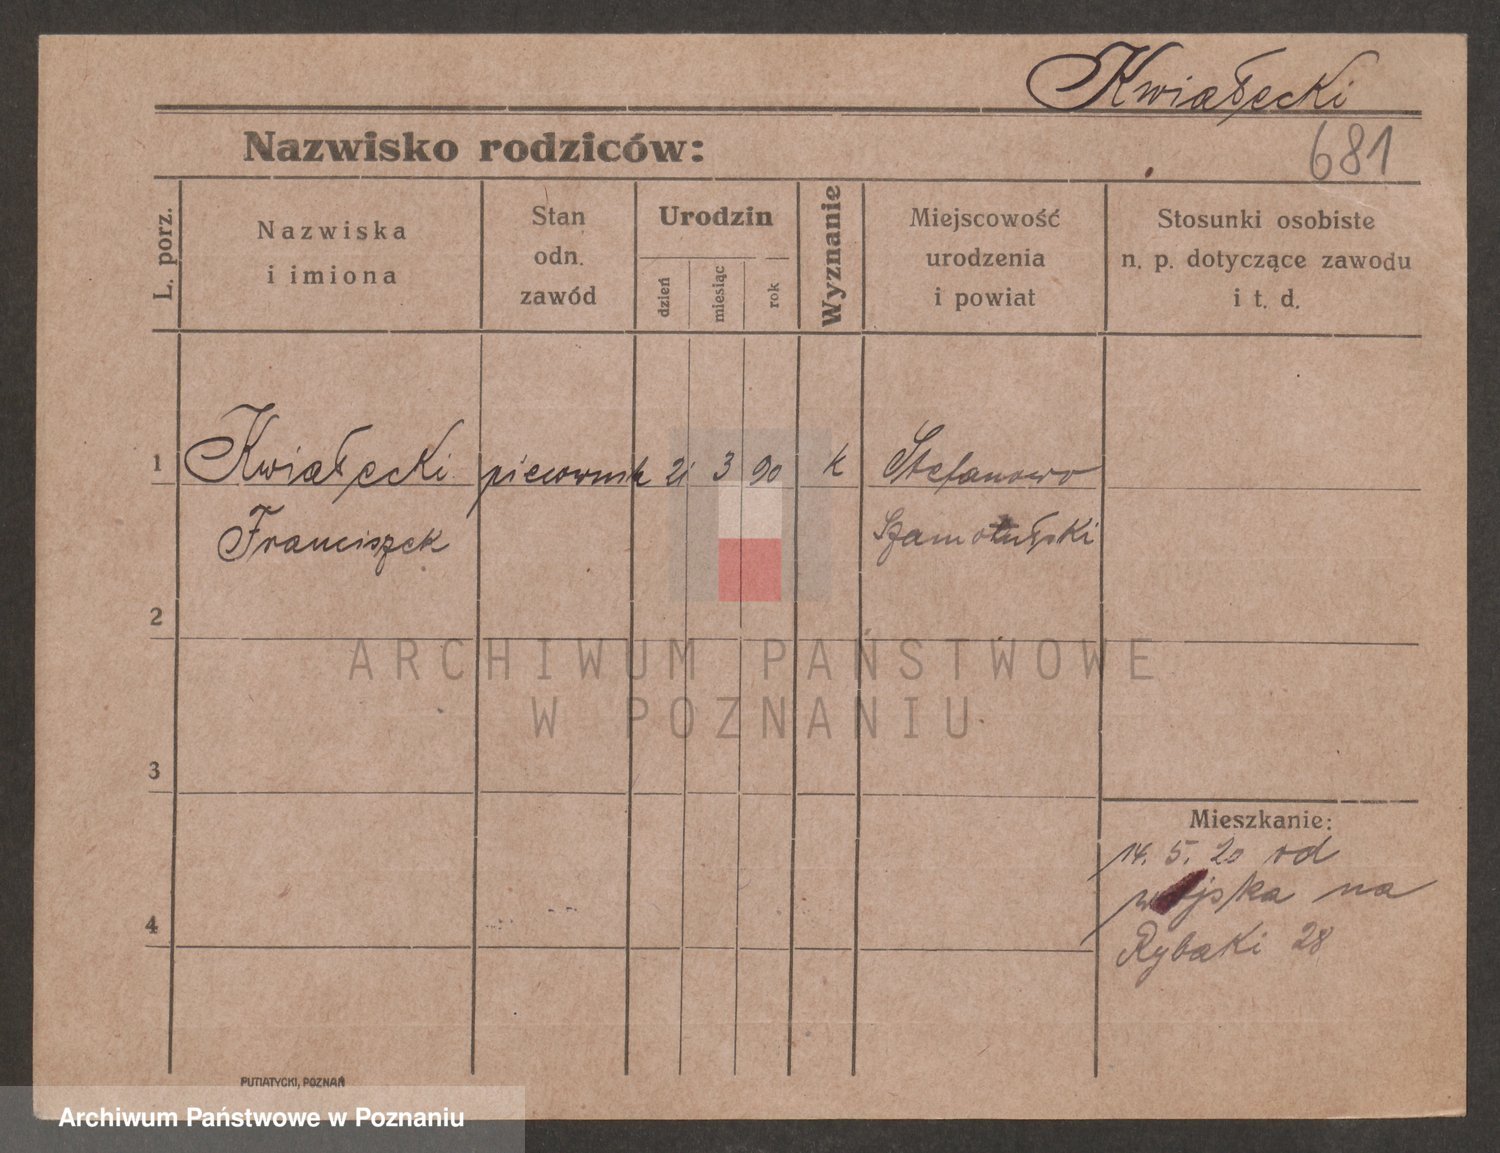 Kwiałecki
681
Nazwisko rodziców:
L. porz.
Nazwiska
i imiona
Stan
odn.
zawód
Urodzin
dzień
miesiąc
rok
Wyznanie
Miejscowość
urodzenia
i powiat
Stosunki osobiste
n. p. dotyczące zawodu
i t. d.
1
Kwiałecki piecownik 21 3 90 k Stefanowo
Franciszek Szamotulski
2
ARCHIWUM PAŃSTWOWE
W POZNANIU
3
Mieszkanie:
14. 5. 20 od
wojska na
Rybaki 28
4
PUTIATYCKI, POZNAŃ
Archiwum Państwowe w Poznaniu